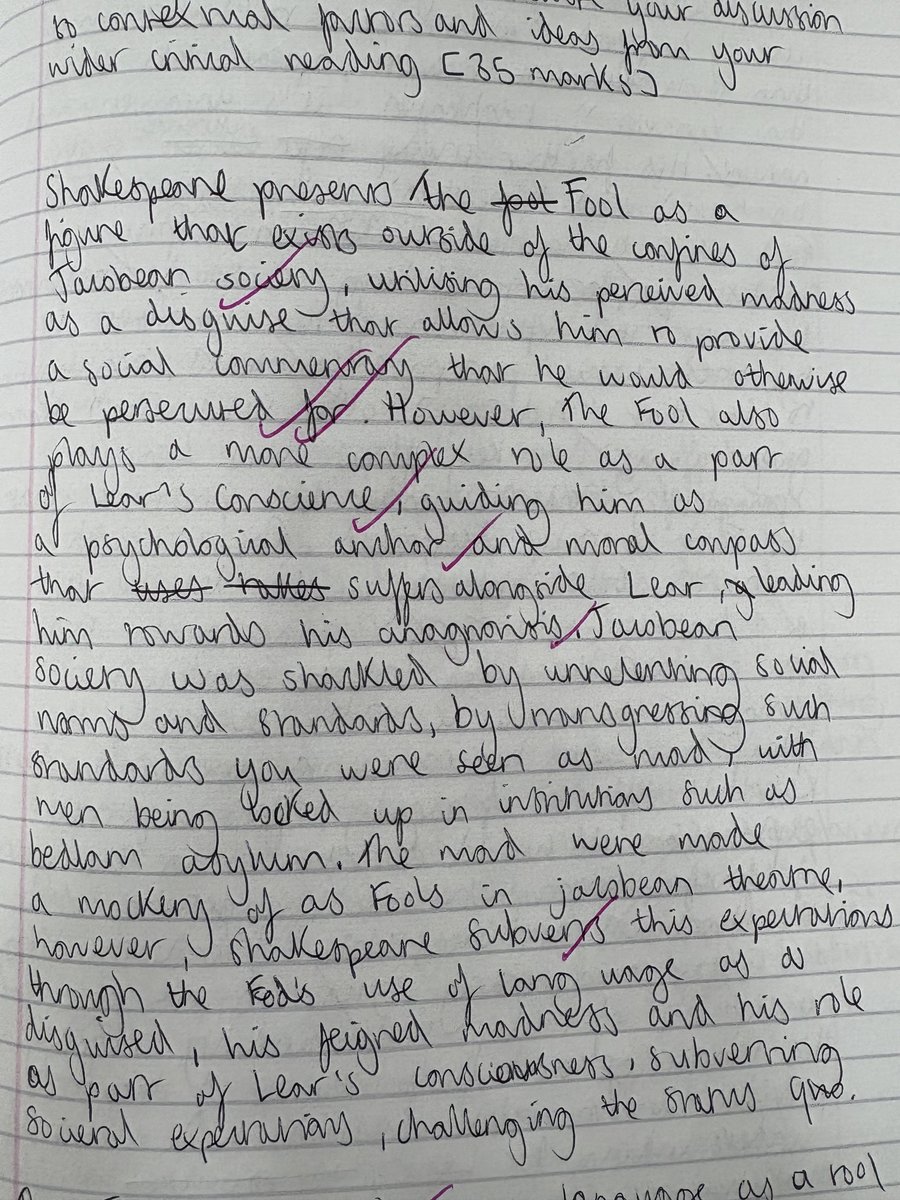 your discussion
to contextual factors and ideas from your
wider critical reading [35 marks]
Shakespeare presents the fool Fool as a
figure that exists outside of the confines of
Jacobean society, utilising his perceived madness
as a disguise that allows him to provide
a social commentary that he would otherwise
be persecuted for. However, The Fool also
plays a more complex role as a part
of Lear's conscience, guiding him as
a psychological anchor and moral compass
that uses takes suffers alongside Lear, leading
him towards his anagnorisis. Jacobean
society was shackled by unrelenting social
norms and standards, by transgressing such
standards you were seen as mad, with
men being locked up in institutions such as
bedlam asylum. The mad were made
a mockery of as Fools in jacobean theatre,
however, Shakespeare subverts this expectations
through the Fool's use of language as a
disguised, his feigned madness and his role
as part of Lear's consciousness, subverting
societal expectations, challenging the status quo.
language as a tool